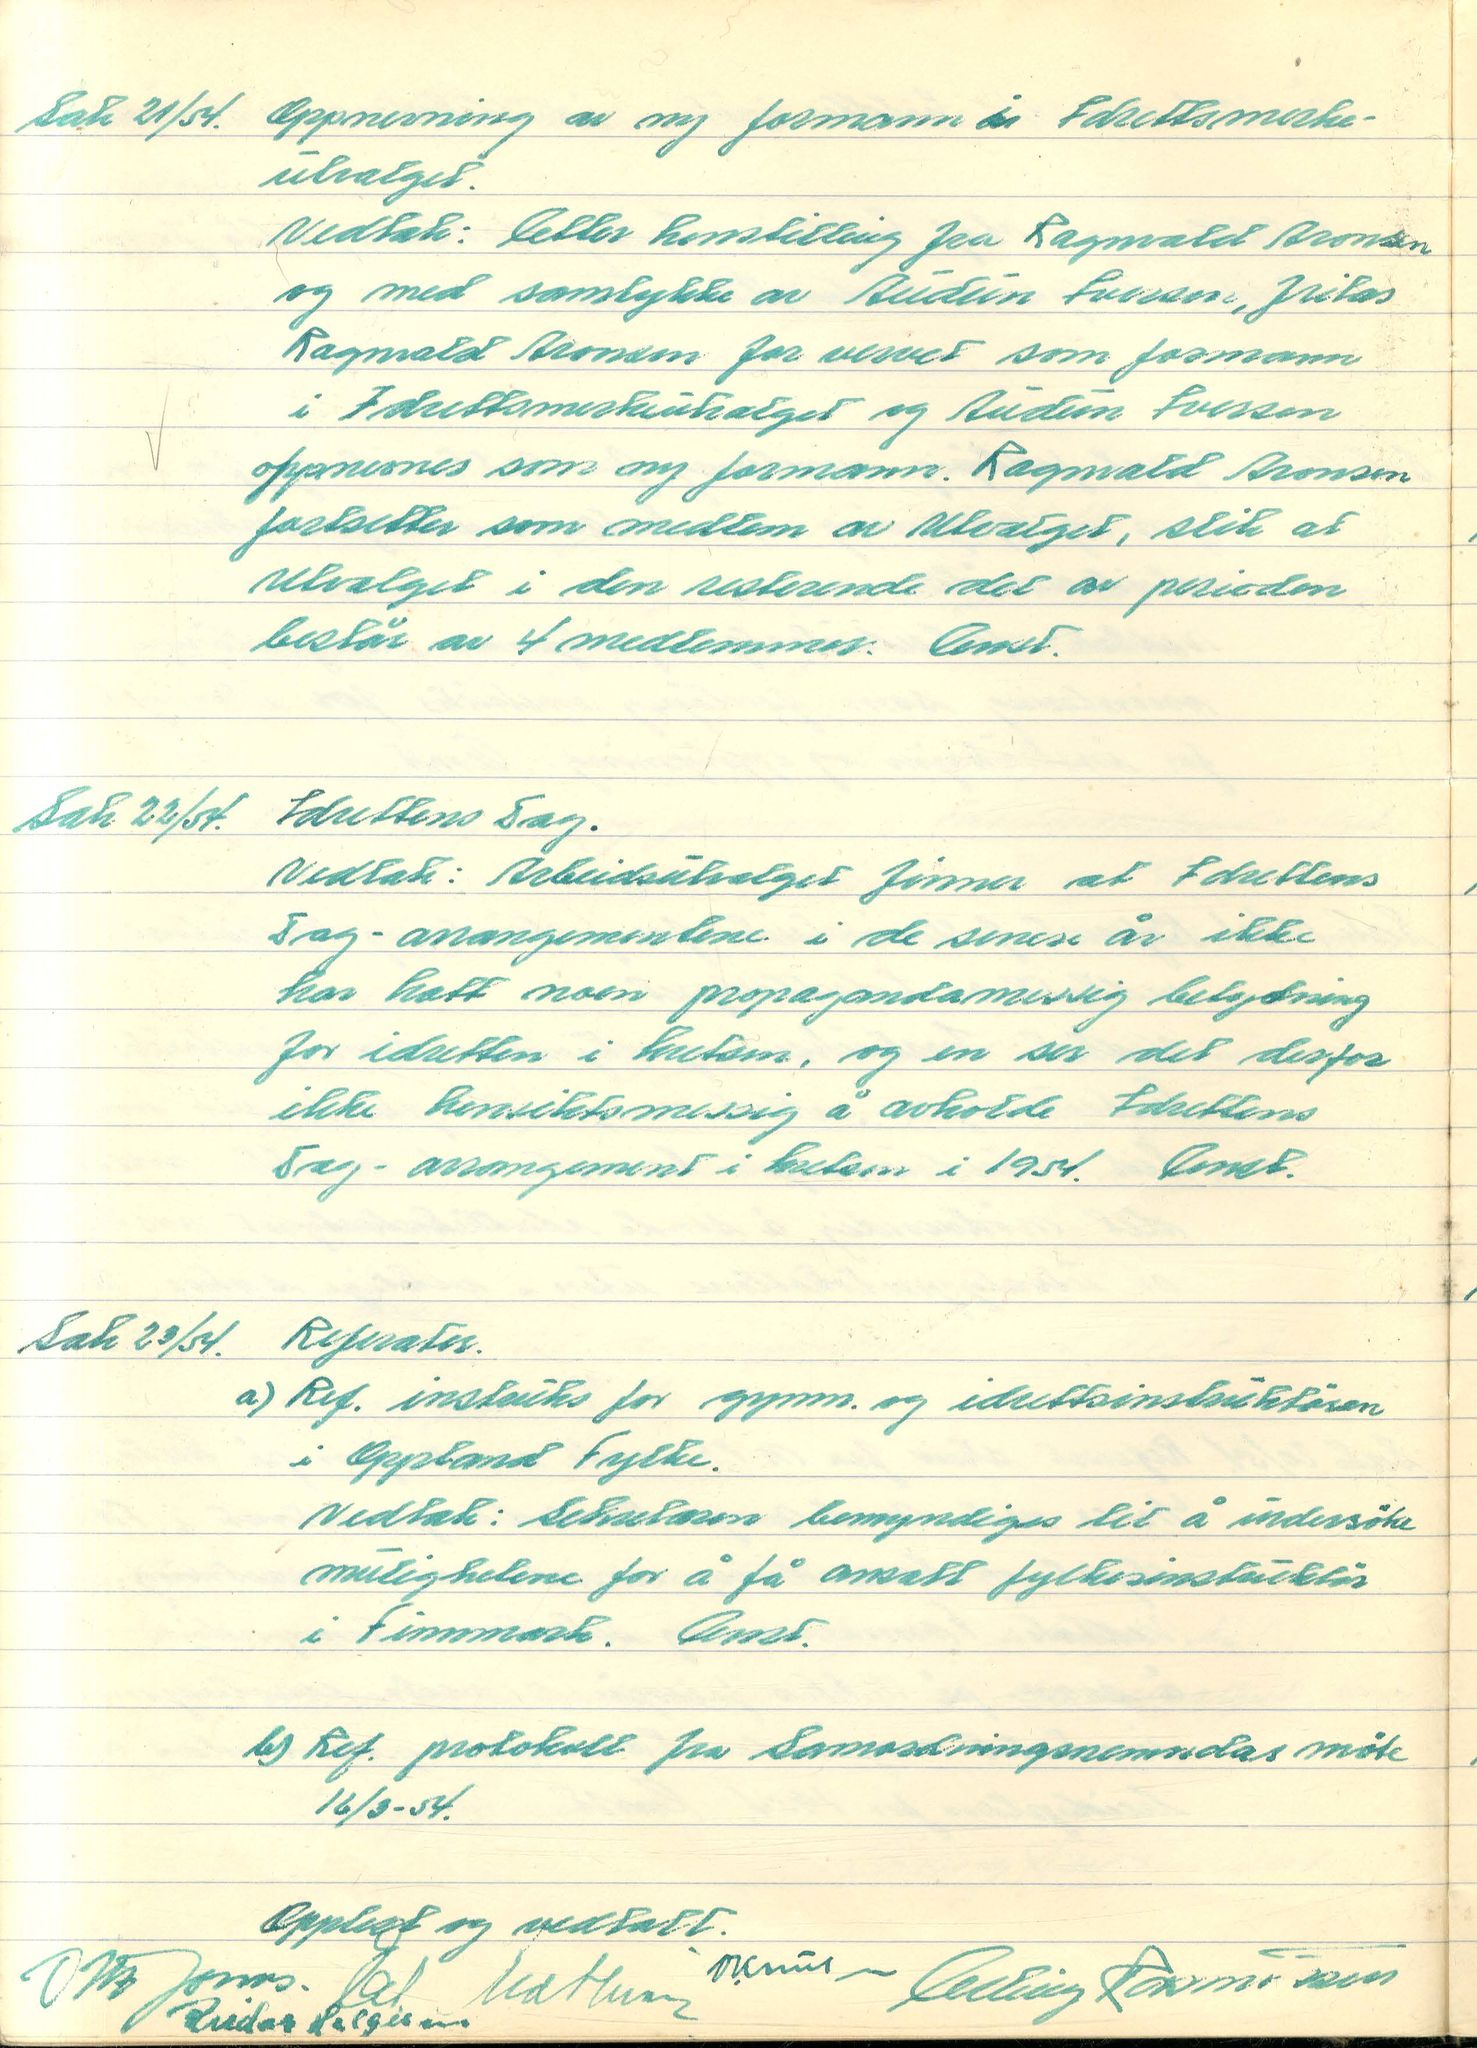 Sak 21/54. Oppnevning av ny formann i Idrettsmerke-
utvalget.
Vedtak: Etter henstilling fra Ragnvald Aronsen
og med samtykke av Audun Iversen, fritas
Ragnvald Aronsen for vervet som formann
i Idrettsmerkeutvalget og Audun Iversen
oppnevnes som ny formann. Ragnvald Aronsen
fortsetter som medlem av Utvalget, slik at
Utvalget i den resterende del av perioden
består av 4 medlemmer. Enst.
Sak 22/54. Idrettens Dag.
Vedtak: Arbeidsutvalget finner at Idrettens
Dag-arrangementene i de senere år ikke
har hatt noen propagandamessig betydning
for idretten i kretsen, og en ser det derfor
ikke hensiktsmessig å avholde Idrettens
Dag-arrangement i kretsen i 1954. Enst.
Sak 23/54. Referater.
a) Ref. instruks for gymn. og idrettsinstruktören
i Oppland Fylke.
Vedtak: Sekretæren bemyndiges til å undersöke
mulighetene for å få ansatt fylkesinstruktör
i Finnmark. Enst.
b) Ref. protokoll fra Samordningsnemndas möte
16/3-54.
Opplest og vedtatt.